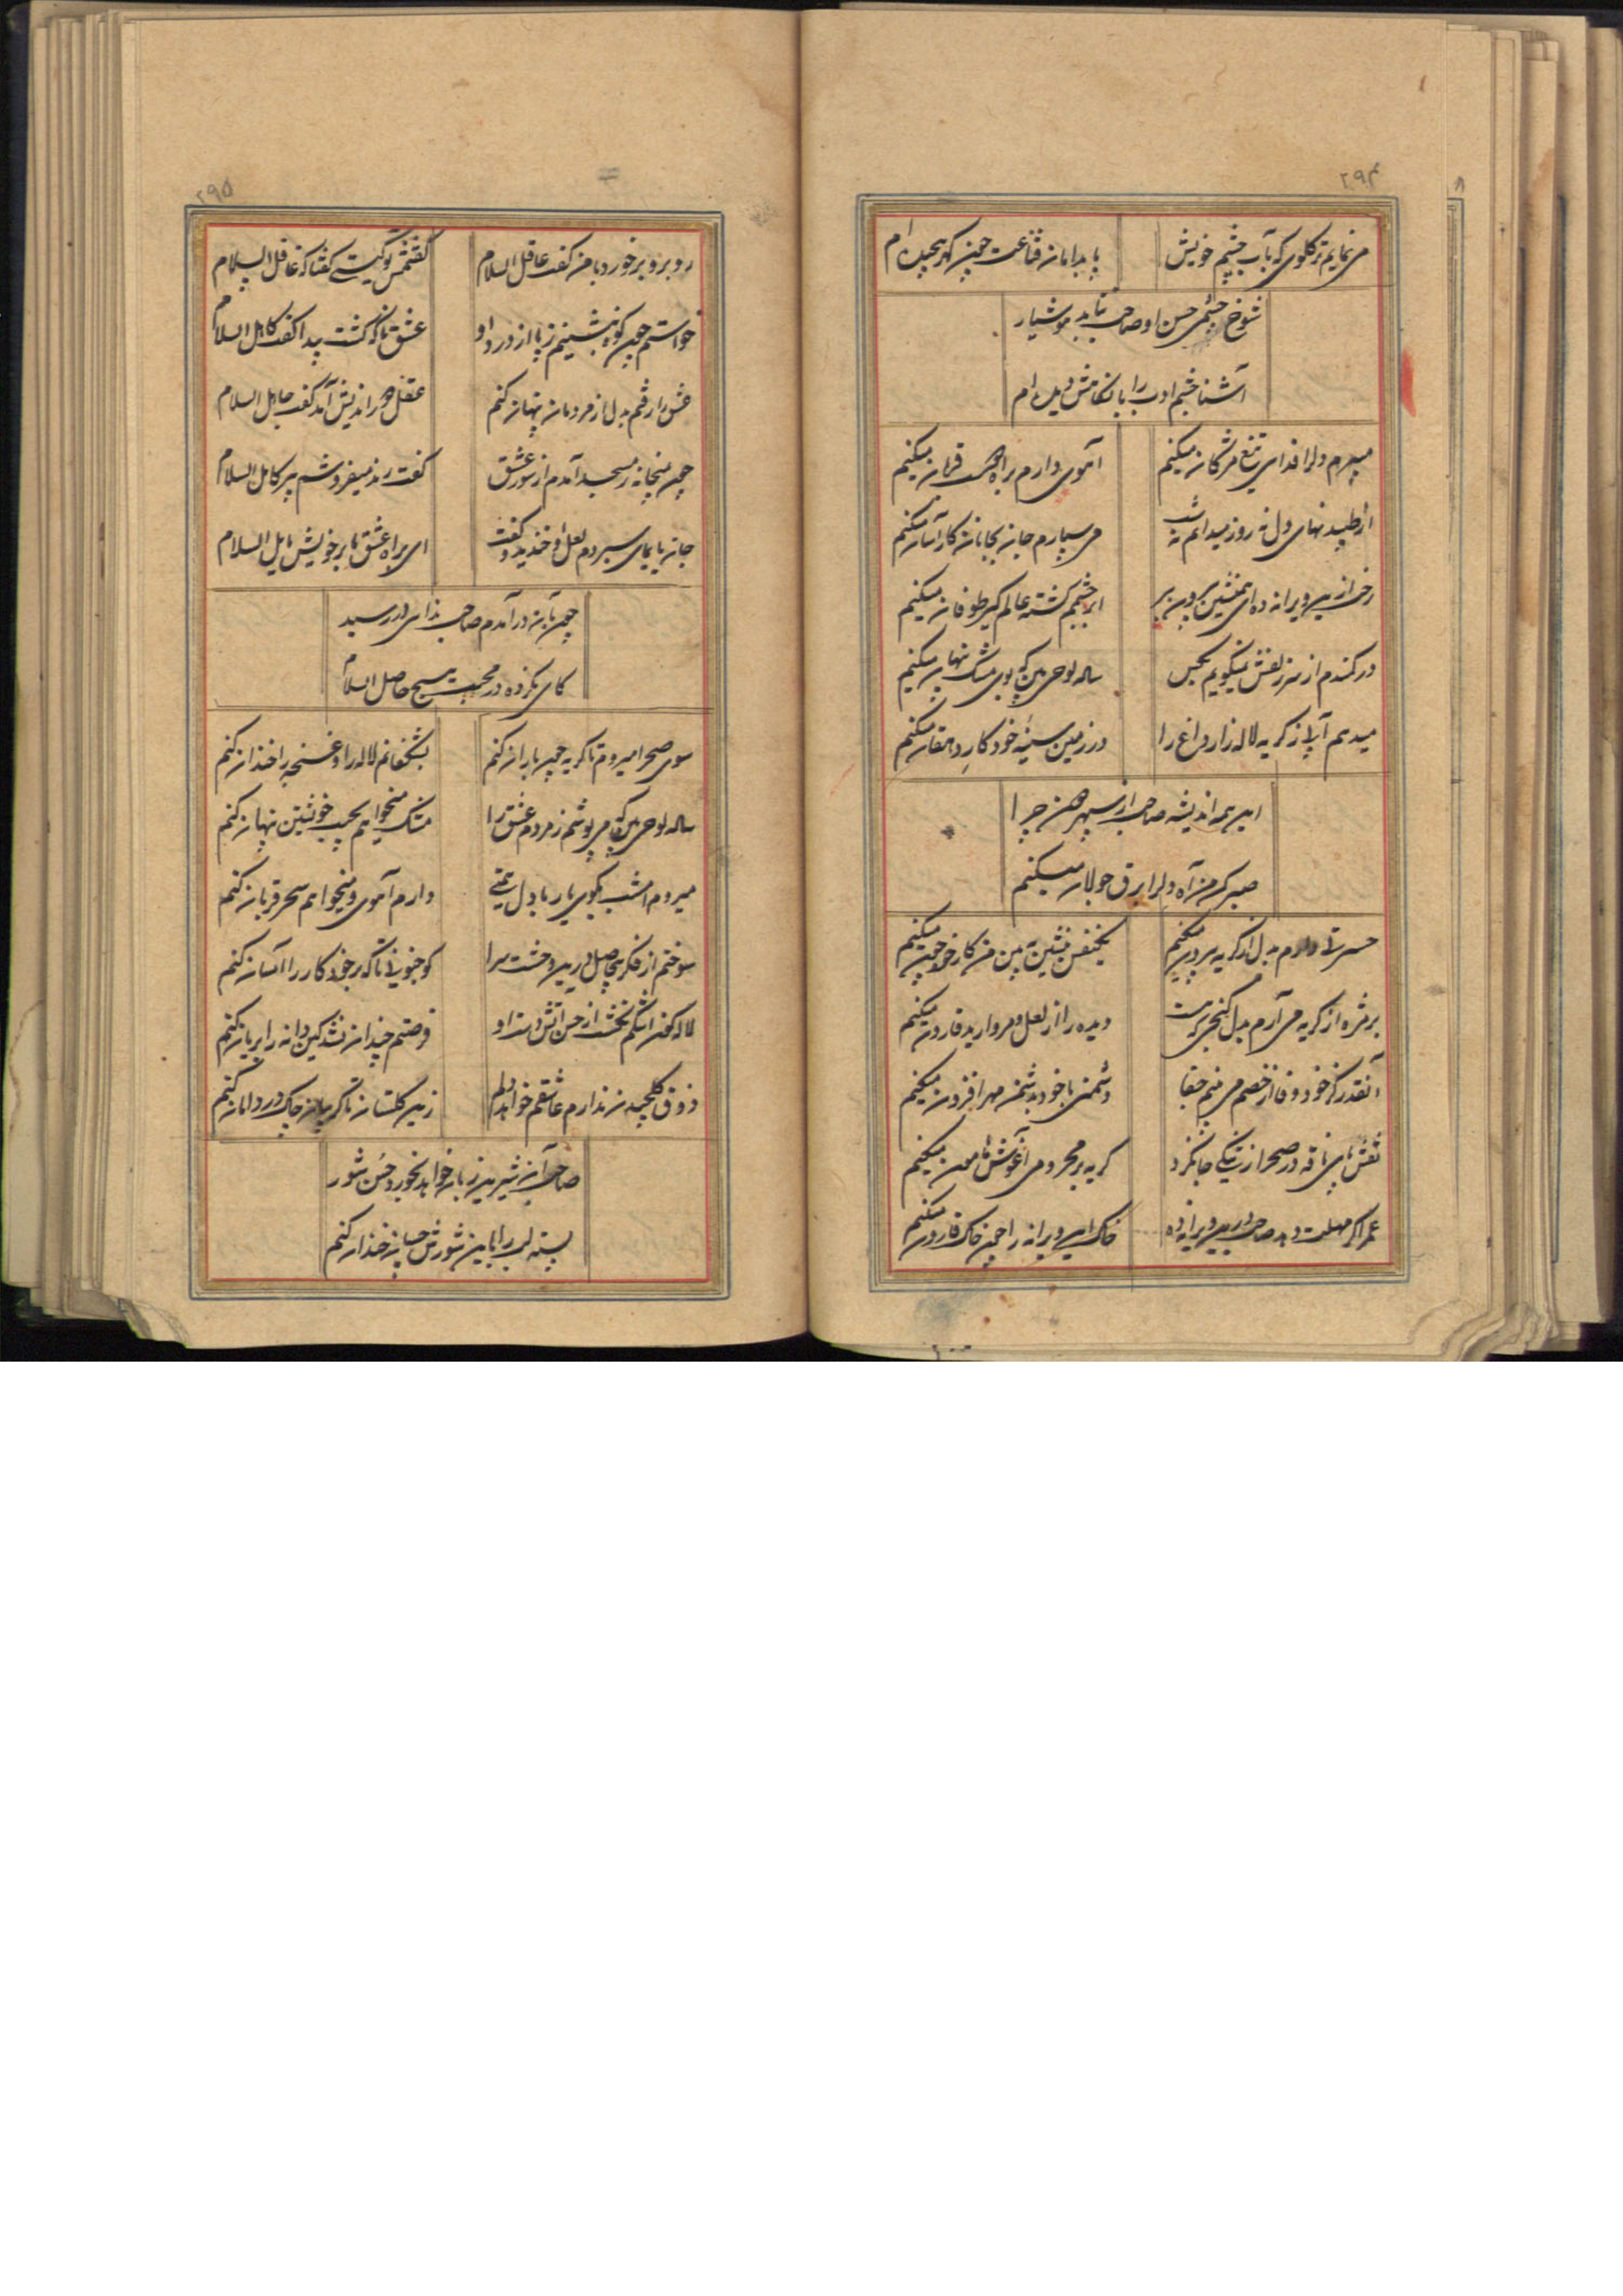 ۲۹۴
می نمایم تر گلوی که بآب چشم خویش پا بدامان قناعت چون گهر پیچیده ام
شوخ چشمی حسن او صاحب نتابد هوشیار
آشنا چشم ادب را با نگاهش دیده ام
میبرم دل را فدای تیغ مژگان میکنم آهوی دارم براه دوست قربان میکنم
از طپیدنهای دل نه روز میدانم نه شب می سپارم جان بجانان کار آسان میکنم
رخت ازین ویرانه ده ای همنشین بیرون ببر ابر چشمم گشته عالم گیر طوفان میکنم
در کمندم از سر زلفش نمیگویم بکس ساده لوحی بین که بوی مشک پنهان میکنم
میدهم آب از گریه لاله زار داغ را در زمین سینه خود کار دهقان میکنم
این همه اندیشه صاحب از سپهر من چرا
صبر کن من آه دل را برق جولان میکنم
حسرتی دارم بدل از گریه بیرون میکنم یکنفس بنشین ببین من کار خود چون میکنم
بر مژه از گریه می آرم بدل گنجی که هست دیده را از لعل و مروارید قارون میکنم
آنقدر کز خود وفا از خصم می بینم جفا دشمنی با خود بدشمن مهر افزون میکنم
نقش پای ناقه در صحرا ز تنگی جا نکرد گریه بر محرومی آغوش هامون میکنم
عمر اگر مهلت دهد صاحب درین ویرانه ده خاک این ویرانه را چون خاک قارون میکنم
۲۹۵
روبرو برخورد با من گفت عاقل السلام گفتمش تو کیستی گفتا که غافل السلام
خواستم چون کوه بنشینم ز پا از درد او عشق ناگه گشت پیدا گفت کاهل السلام
عشق را رفتم بدل از مردمان پنهان کنم عقل دور اندیش آمد گفت جاهل السلام
چون بمیخانه ز مسجد آمدم از شور عشق گفت رند میفروشم پیر کامل السلام
جان بایمای سپردم لعل او خندید و گفت ای براه عشق ما بر خویش مایل السلام
چون بآن در آمدم صاحب ندای در رسید
کای نکرده در محبت هیچ حاصل السلام
سوی صحرا میروم تا گریه چون باران کنم بشکفانم لاله را و غنچه را خندان کنم
ساده لوحی بین که می پوشم ز مردم عشق را مشک میخواهم بجیب خویشتن پنهان کنم
میروم امشب بکوی یار با دل همتی دارم آهوی و میخواهم سحر قربان کنم
سوختم از فکر بیحاصل درین وحشت سرا کو جنونی تا که بر خود کار را آسان کنم
لاله گون اشکم نگشت از حسن آتش دست او فرصتم چندان نشد کین دانه را بریان کنم
ذوق گلچیدن ندارم عاشقم خواهد دلم زین گلستان تا گریبان چاک در دامان کنم
صاحب آن شیرین زبان خواهد نخورد حسن شور
پسته لب را باین شورش چسان خندان کنم